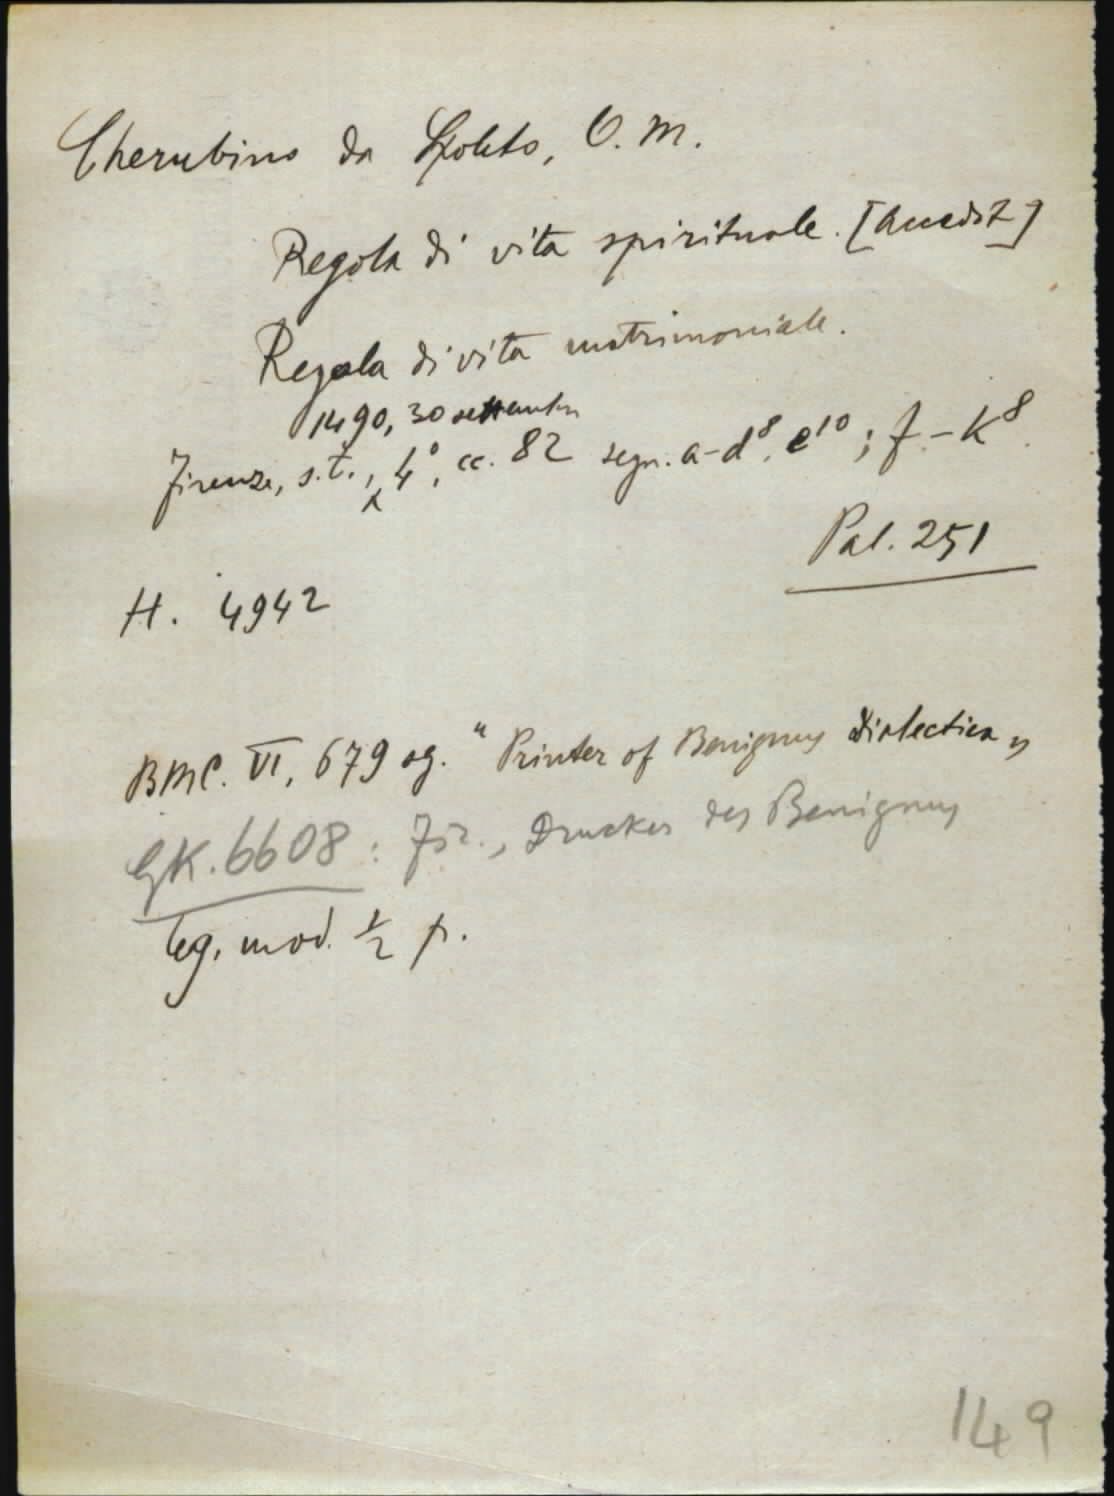 Cherubino da Spoleto, O. M.
Regola di vita spirituale. [Accedit]
Regola di vita matrimoniale.
1490, 30 settembre
Firenze, s.t., 4°, cc. 82 segn. a-d⁸, e¹⁰; f-k⁸.
Pal. 251
H. 4942
BMC. VI, 679 sg. "Printer of Benignus Dialectica"
GK. 6608: Fir., Drucker des Benignus
leg. mod. ½ p.
149